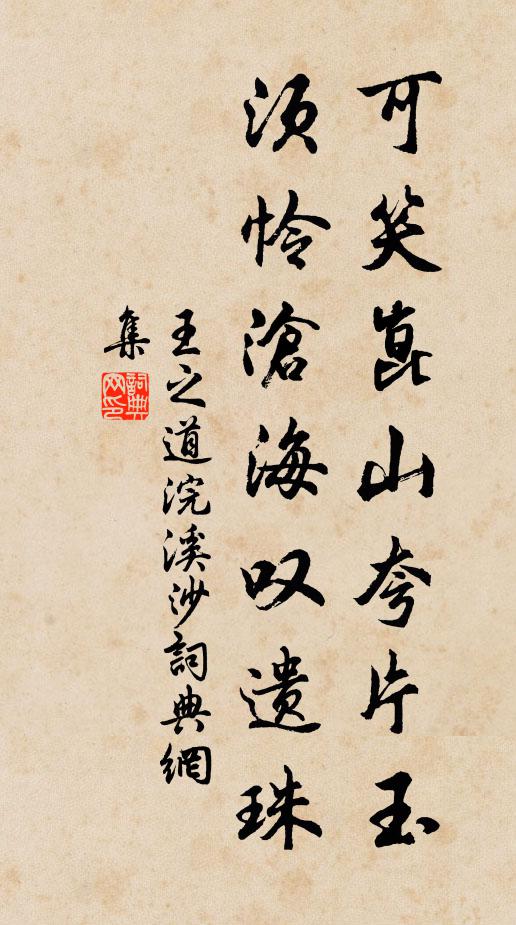 可笑崑山夸片玉
须怜滄海叹遗珠
王之道浣溪沙詞典網
集
詞典网印